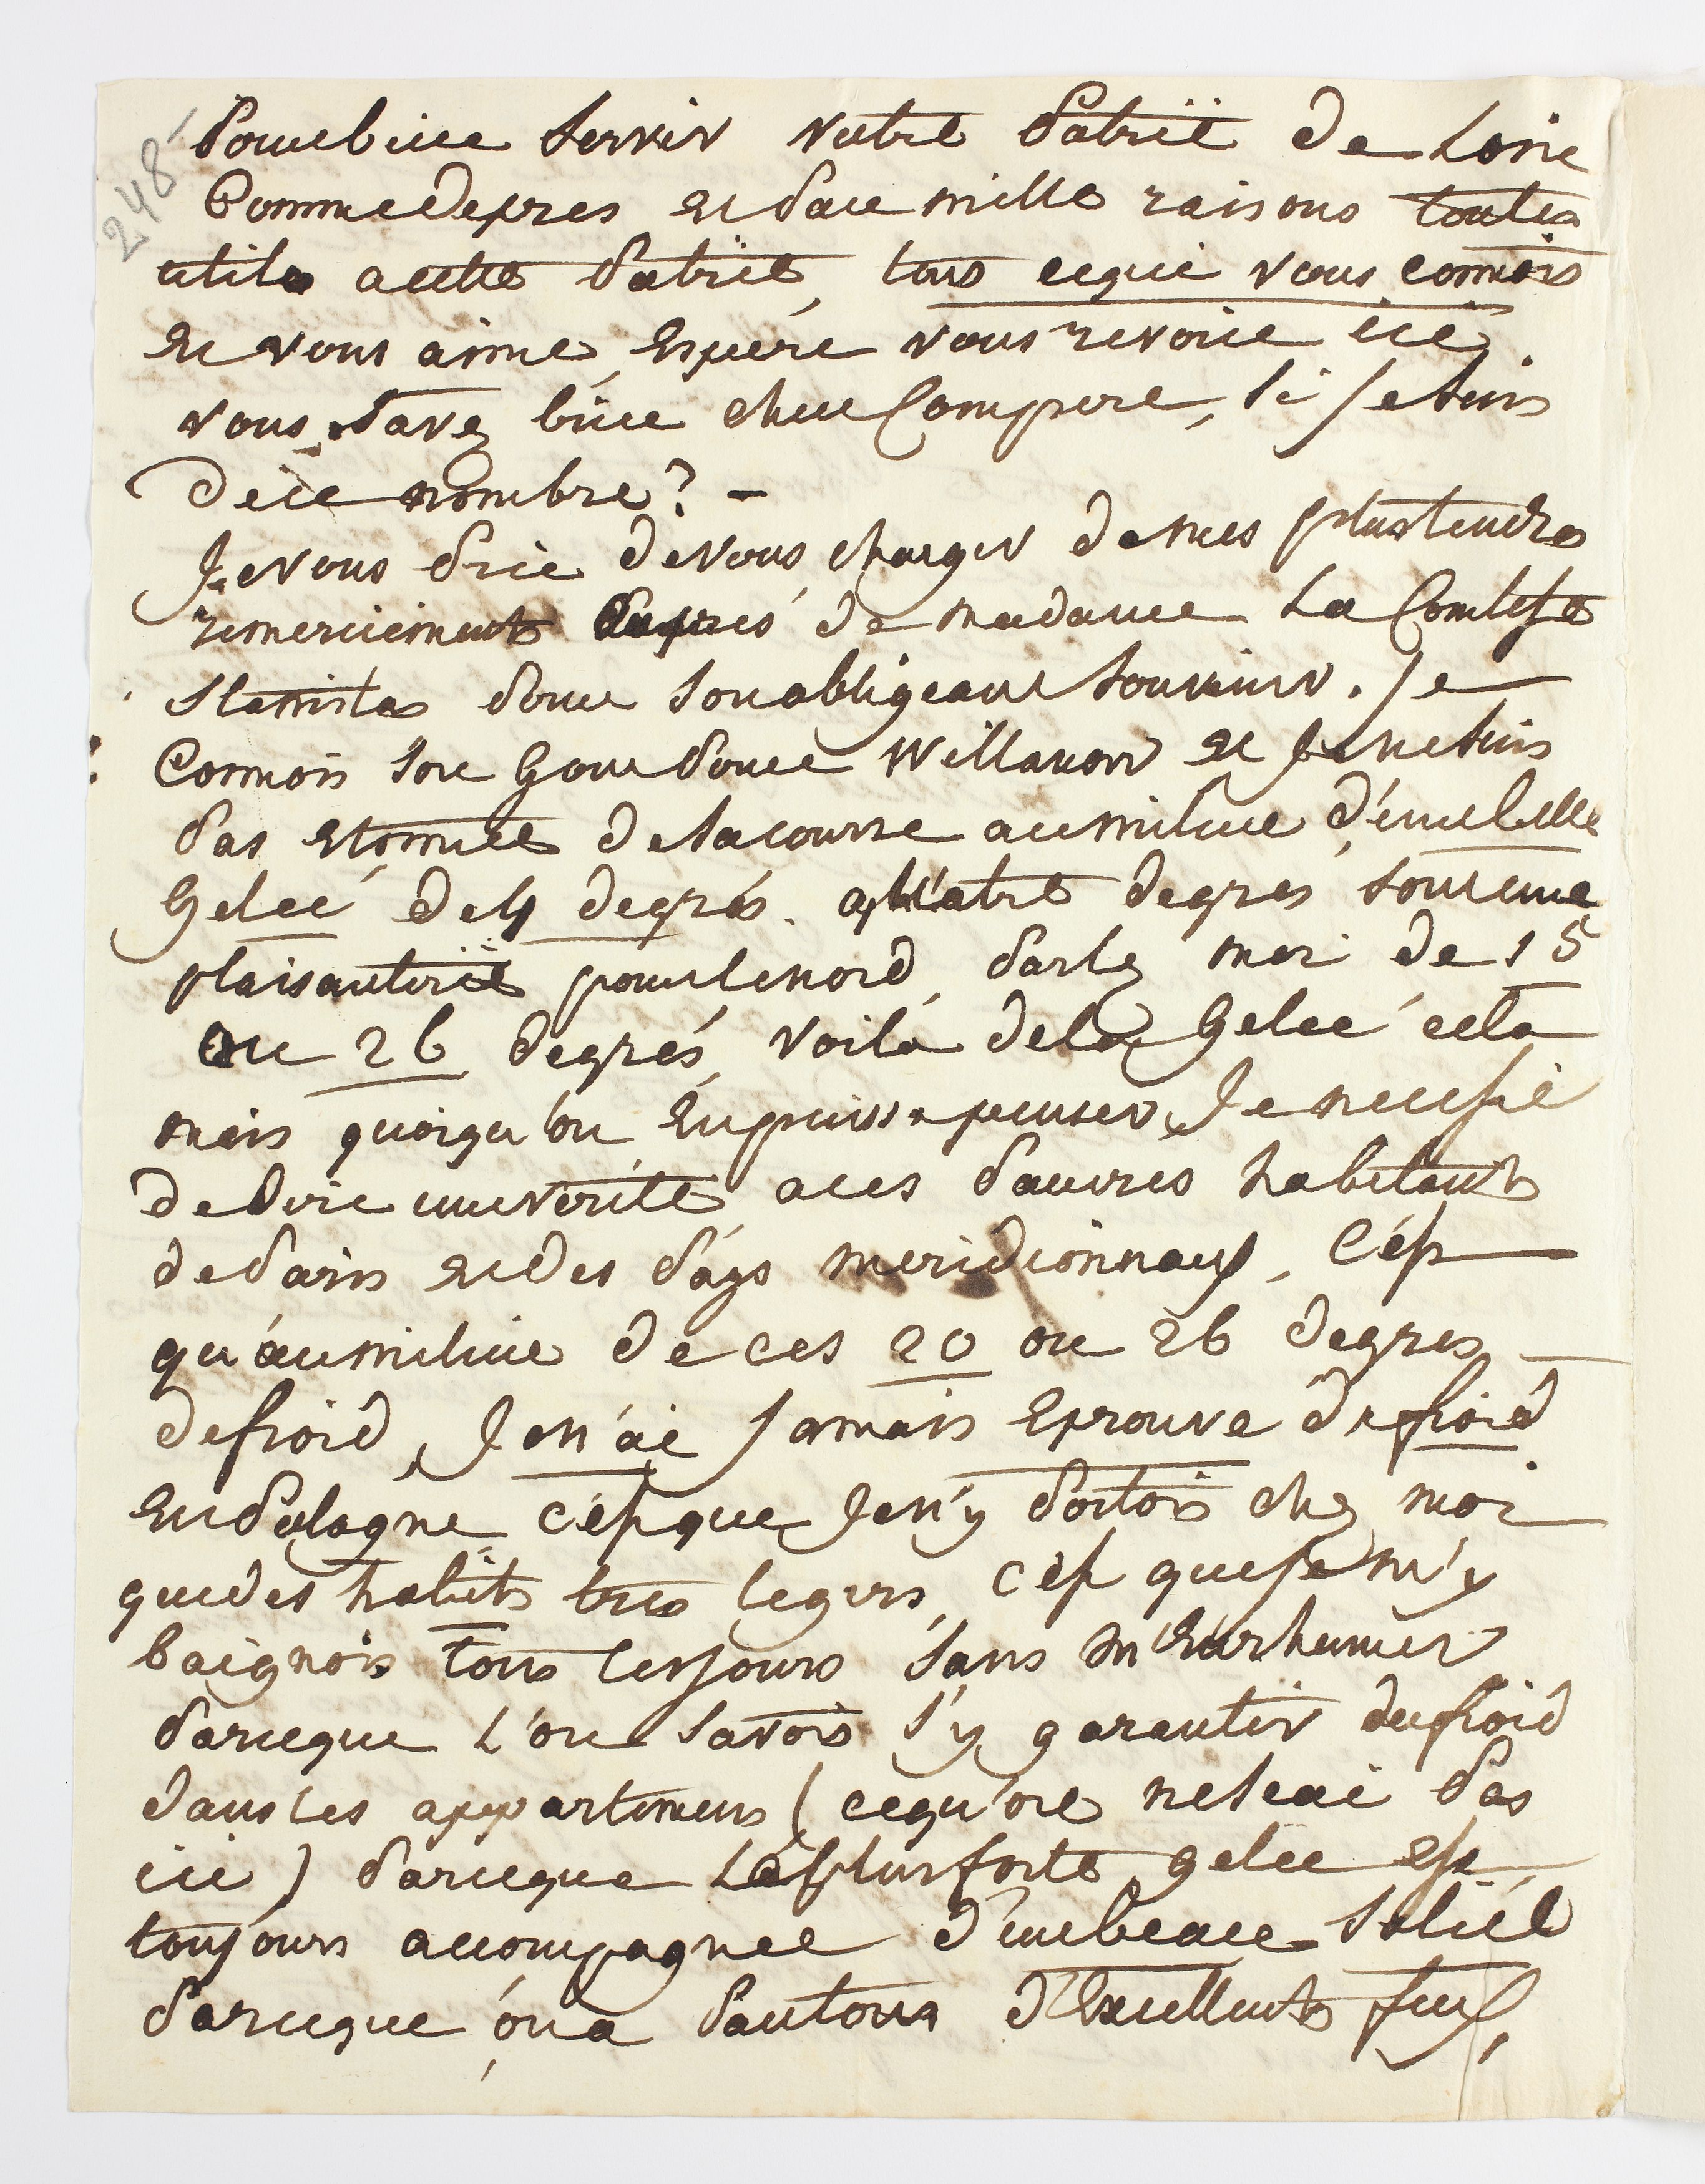 248
Pour bien servir votre Patrïe de Loin
Comme de pres et par mille raisons toutes
utiles a cette Patrïe, tous ce qui vous connois
et vous aime, Espére vous revoir ici.
vous Savez bien cher Compere, si je suis
de ce nombre? –
Je vous Prie de vous charger de mes plus tendres
remerciements auprés de madame La Comtesse
Stanislas Pour son obligeant souvenir. Je
Connois son Gout Pour Willanow et je ne suis
Pas Etonnée de sa course au milieu d'une belle
Gelée de 4 degrés. quatre degres sont une
plaisanterïe pour le nord, Parlez moi de 15
ou 26 degrés, voila de la Gelée cela
mais quoiqu'on En puisse penser, Je ne cesse
de Dire une verité a ces Pauvres habitants
de Paris et des Päys meridionnaux, C'est
qu'au milieu de ces 20 ou 26 degres
de froid, Je n'ai jamais Eprouvé de froid
en Pologne c'est que Je n'y Portois chez moi
que des habits tres legers, c'est que je m'y
baignois tous les jours sans m'Enrhumer
Parceque l'on savois s'y garantir du froid
dans les appartemens (ce qu'on ne scai Pas
ici) Parceque La plus forte gelée est
toujours accompagnée d'un beau soliel
Parceque on a Partout d'Excellents feux,